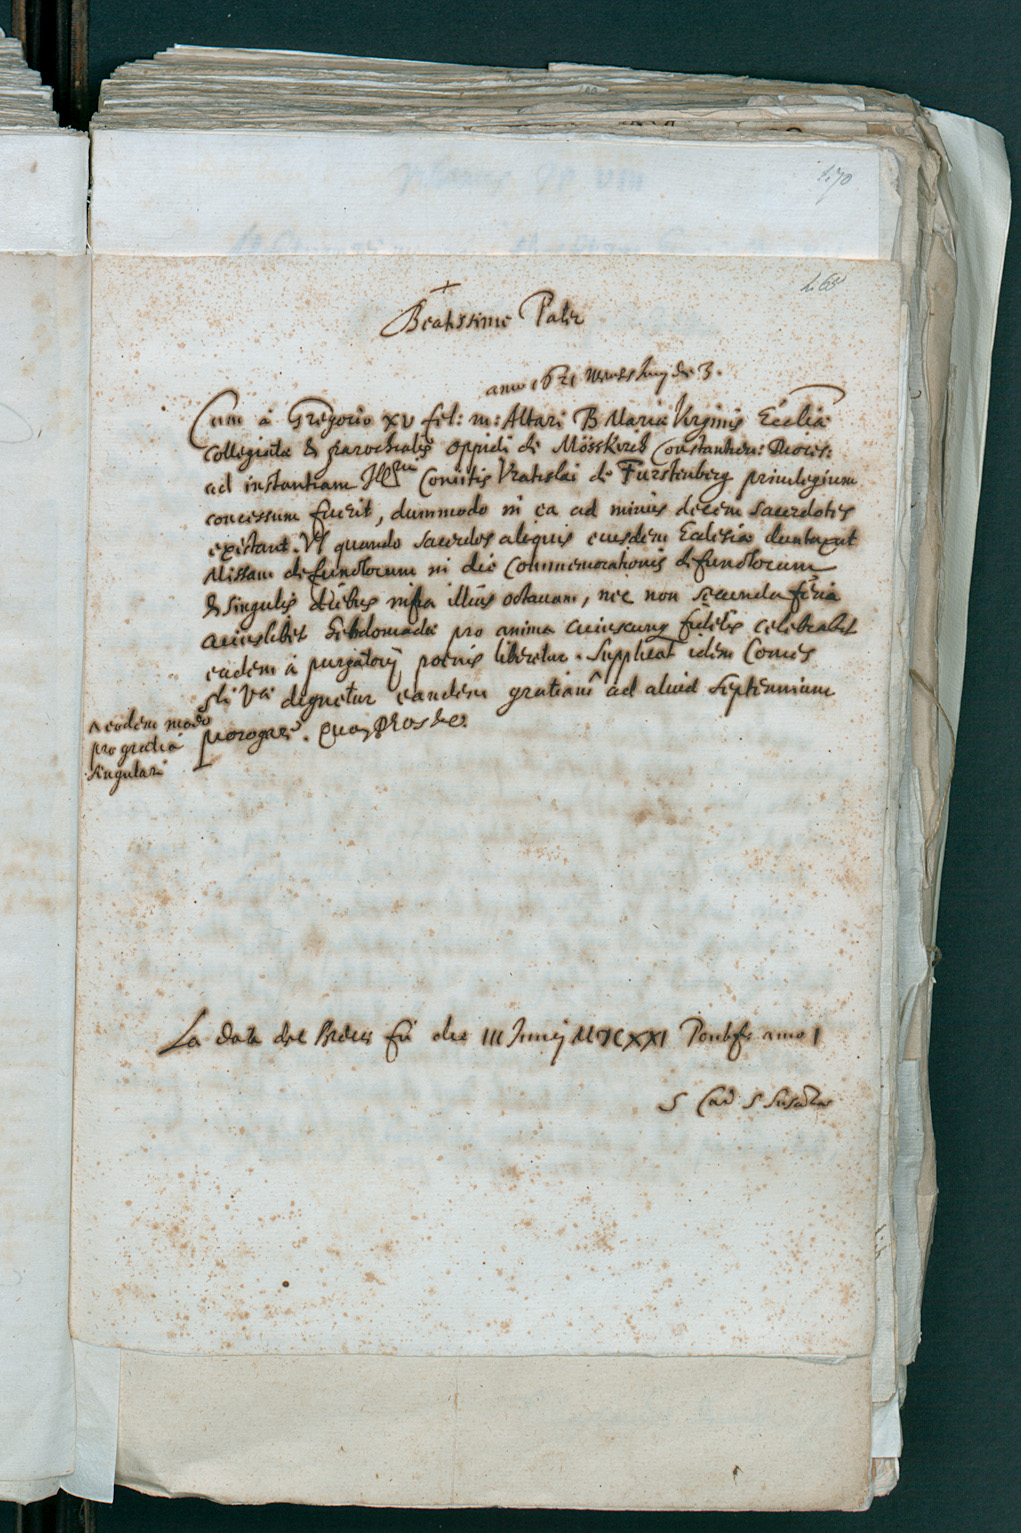 270
268
+
Beatissime Pater
anno 1621 mensis Junij die 3.
Cum à Gregorio XV fel: m: Altari B Mariæ Virginis Ecclīæ
Collegiatæ & parochialis oppidi de Mösskirch Constantien: Dioces:
ad instantiam Ill̄m̄i Comitis Vratislai de Furstenberg priuilegium
concessum fuerit, dummodo in ea ad minus decem sacerdotes
existant. Vt quando sacerdos aliquis eiusdem Ecclesiæ duntaxat
Missam defunctorum in die Commemorationis defunctorum
& singulis diebus infra illius octauam, nec non secunda feria
cuiuslibet hebdomadæ pro anima cuiuscunq fidelis celebrabit
eadem à purgatorij poenis liberetur. Supplicat idem Comes
Sti Vræ dignetur eandem gratiam ^ ad aliud septennium
^ eodem modo
pro gratia
singulari
prorogare. Quam Deus
La data del Breue fu die III Junij MDCXXI Pontifs anno I
S Card S Susanæ